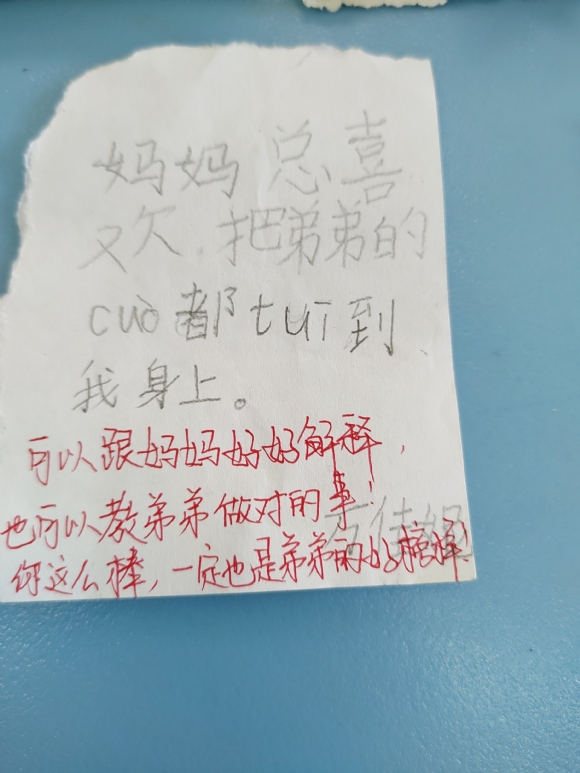 妈妈总喜
欢.把弟弟的
cuò都tuī到
我身上。
可以跟妈妈好好解释，
也可以教弟弟做对的事！
你这么棒，一定也是弟弟的好榜样！